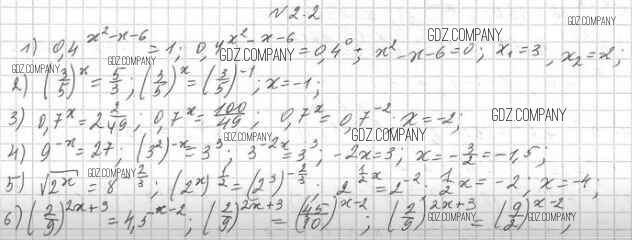 №2.2
GDZ.COMPANY
GDZ.COMPANY
1) 0,4^{x²-x-6} = 1; 0,4^{x²-x-6} = 0,4⁰; x²-x-6=0; x₁=3, x₂=2;
GDZ.COMPANY
GDZ.COMPANY
GDZ.COMPANY
2) (3/5)^x = 5/3; (3/5)^x = (3/5)^{-1}; x=-1;
3) 0,7^x = 2 2/49; 0,7^x = 100/49; 0,7^x = 0,7^{-2}; x=-2;
GDZ.COMPANY
GDZ.COMPANY
GDZ.COMPANY
4) 9^{-x} = 27; (3²)^{-x} = 3³; 3^{-2x} = 3³; -2x=3; x = -3/2 = -1,5;
GDZ.COMPANY
5) √(2^x) = 8^{-2/3}; (2^x)^{1/2} = (2³)^{-2/3}; 2^{1/2 x} = 2^{-2}; 1/2 x = -2; x=-4;
6) (2/9)^{2x+3} = 4,5^{x-2}; (2/9)^{2x+3} = (45/10)^{x-2}; (2/9)^{2x+3} = (9/2)^{x-2};
GDZ.COMPANY
GDZ.COMPANY